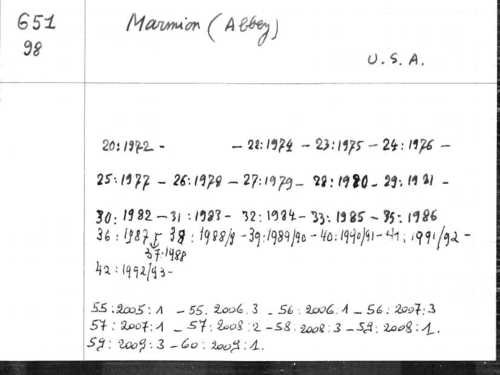 651
98
Marmion (Abbey)
U.S.A.
20:1972 - - 22:1974 - 23:1975 - 24:1976 -
25:1977 - 26:1978 - 27:1979 - 28:1980 - 29:1981 -
30:1982 - 31:1983 - 32:1984 - 33:1985 - 35:1986
36:1987 - 38:1988/9 - 39:1989/90 - 40:1990/91 - 41:1991/92 -
37:1988
42:1992/93 -
55:2005:1 - 55:2006:3 - 56:2006:1 - 56:2007:3
57:2007:1 - 57:2008:2 - 58:2008:3 - 59:2008:1.
59:2009:3 - 60:2009:1.